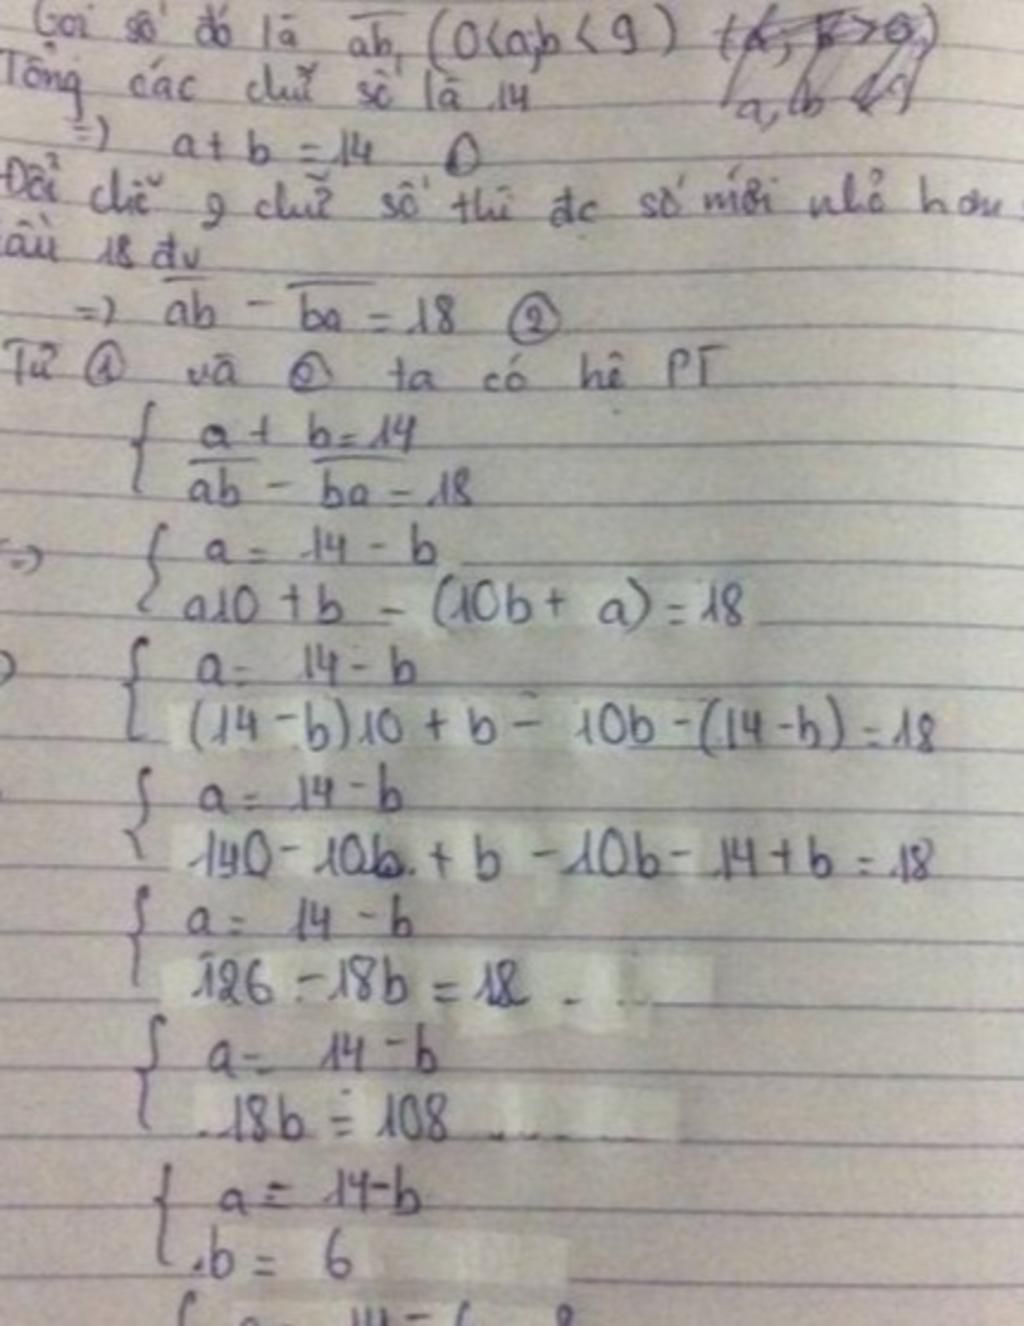 Gọi số đó là ab, (0<a,b<9)
a, b
Tổng các chữ số là 14
=> a + b = 14 ①
Đổi chỗ 2 chữ số thì đc số mới nhỏ hơn
18 đv
=> ab - ba = 18 ②
Từ ① và ② ta có hệ PT
{ a + b = 14
ab - ba = 18
=> { a = 14 - b
a10 + b - (10b + a) = 18
{ a = 14 - b
(14 - b)10 + b - 10b - (14 - b) = 18
{ a = 14 - b
140 - 10b + b - 10b - 14 + b = 18
{ a = 14 - b
126 - 18b = 18
{ a = 14 - b
18b = 108
{ a = 14 - b
b = 6